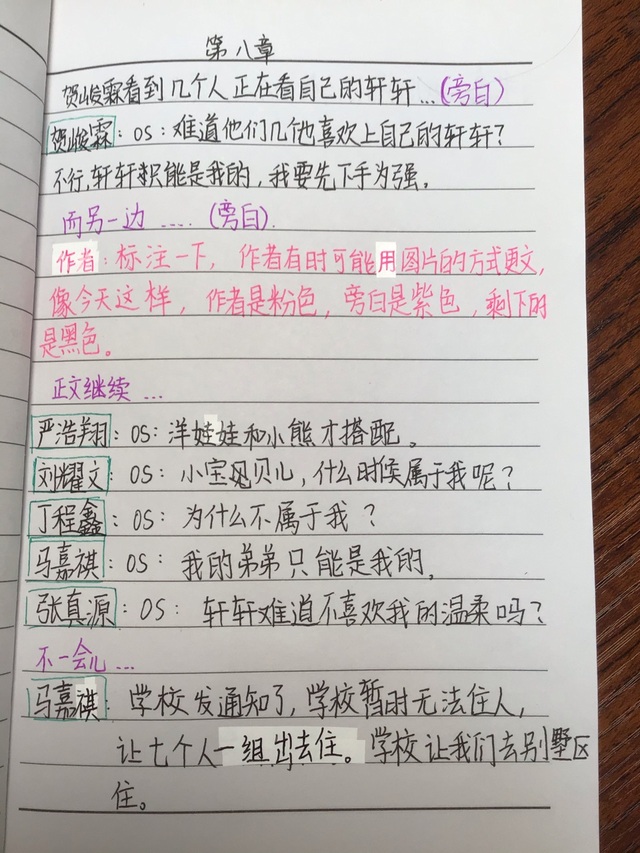 第八章
贺峻霖看到几个人正在看自己的轩轩...(旁白)
贺峻霖:OS:难道他们几他喜欢上自己的轩轩?
不行,轩轩只能是我的,我要先下手为强。
而另一边 .... (旁白).
作者:标注一下, 作者有时可能用图片的方式更文,
像今天这样, 作者是粉色, 旁白是紫色, 剩下的
是黑色。
正文继续 ...
严浩翔:OS:洋娃娃和小熊才搭配。
刘耀文:OS:小宝贝儿,什么时候属于我呢?
丁程鑫:OS:为什么不属于我?
马嘉祺:OS:我的弟弟只能是我的,
张真源:OS:轩轩难道不喜欢我的温柔吗?
不一会儿...
马嘉祺:学校发通知了,学校暂时无法住人,
让七个人一组出去住。学校让我们去别墅区
住。